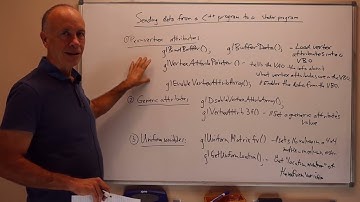 Sending data from a C++ program to a shader program
① Per-vertex attributes:
glBindBuffer(), glBufferData(), - Load vertex
attributes into a
VBO
glVertexAttribPointer() - tells the VAO
what vertex attributes are in the VBO.
glEnableVertexAttribArray(), Enable the data from the VBO.
② Generic attributes: glDisableVertexAttribArray(),
glVertexAttrib3f() - Set a generic attribute's
value
③ Uniform variables: glUniformMatrixfv() - Sets
glGetUniformLocation() - Get "location number" of